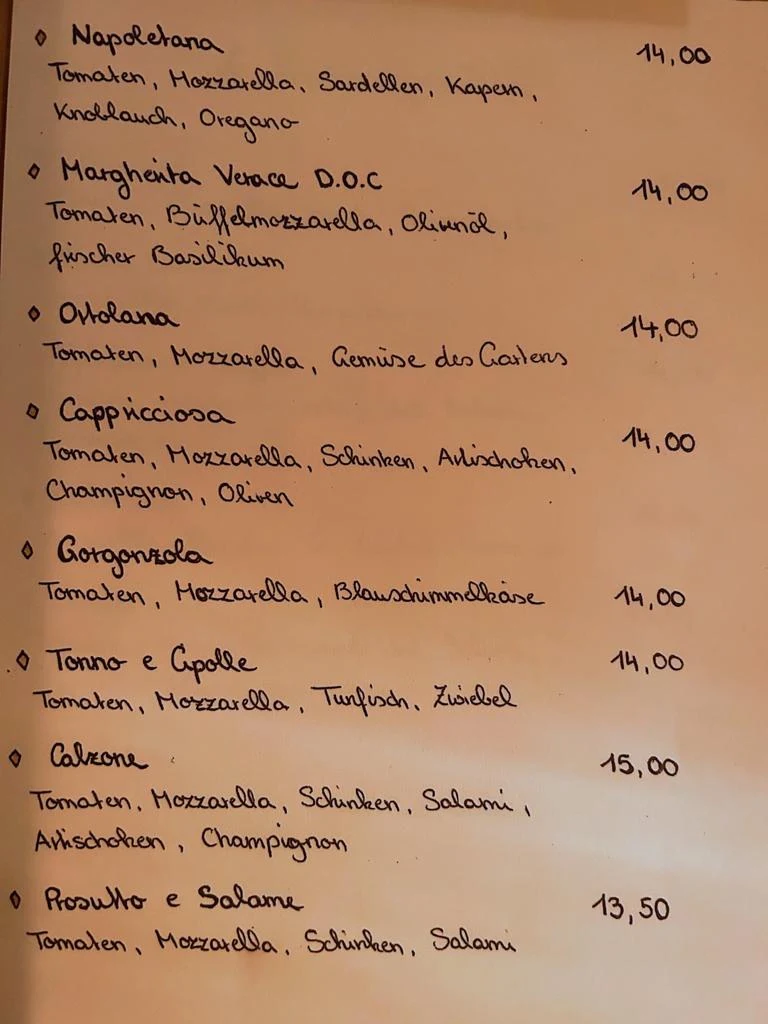 Napoletana 14,00
Tomaten, Mozzarella, Sardellen, Kapern,
Knoblauch, Oregano
Margherita Verace D.O.C 14,00
Tomaten, Büffelmozzarella, Olivenöl,
frischer Basilikum
Ortolana 14,00
Tomaten, Mozzarella, Gemüse des Gartens
Cappricciosa 14,00
Tomaten, Mozzarella, Schinken, Artischoken,
Champignon, Oliven
Gorgonzola
Tomaten, Mozzarella, Blauschimmelkäse 14,00
Tonno e Cipolle 14,00
Tomaten, Mozzarella, Tunfisch, Zwiebel
Calzone 15,00
Tomaten, Mozzarella, Schinken, Salami,
Artischoken, Champignon
Prosutto e Salame 13,50
Tomaten, Mozzarella, Schinken, Salami